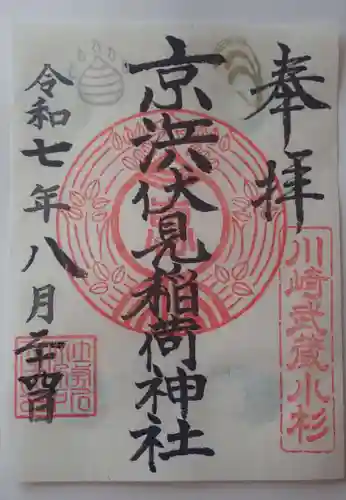 奉拝
川崎武蔵小杉
京浜伏見稲荷神社
令和七年八月二十四日